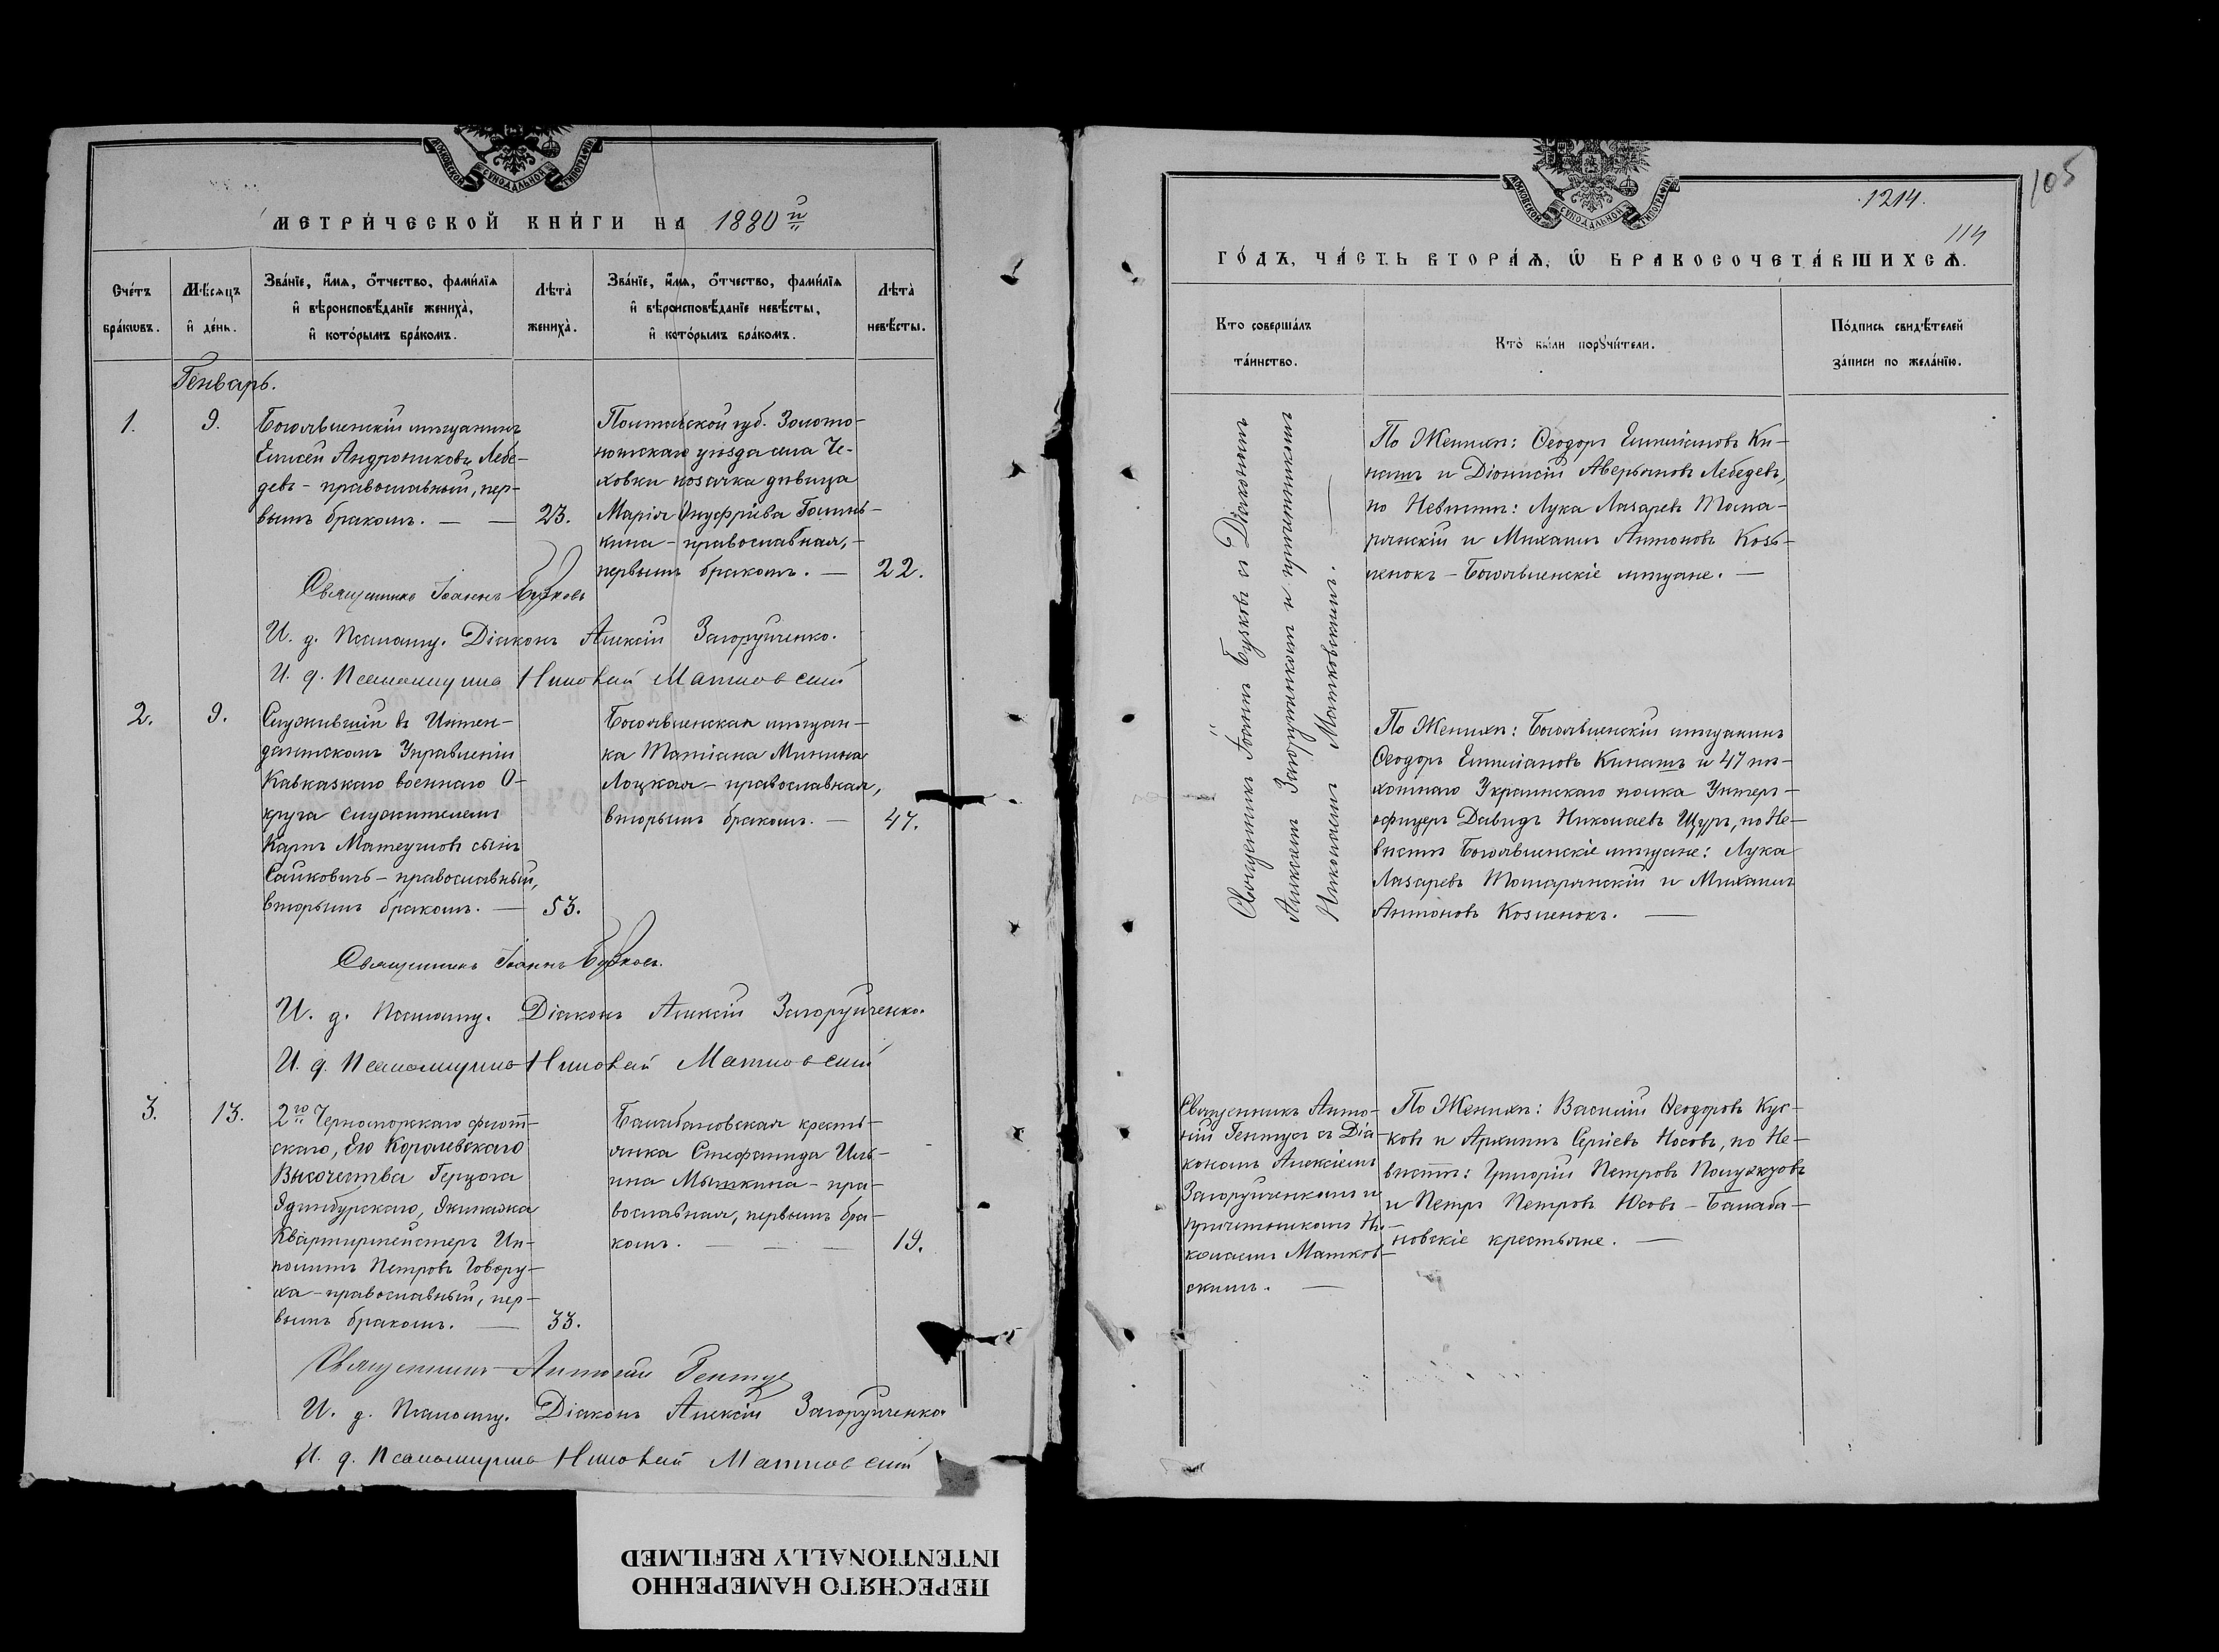 МОСКОВСКОЙ СѴНОДАЛЬНОЙ ТИПОГРАФІИ
МЕТРИ́ЧЕСКОЙ КНИ́ГИ НА 1880й
Сче́тъ бра́кѡвъ.
Мѣ́сѧцъ и҆ де́нь.
Зва́нїе, и҆́мѧ, ѻ҆́тчество, фами́лїѧ
и҆ вѣроисповѣ́данїе жениха̀,
и҆ кото́рымъ бра́комъ.
Лѣта̀ жениха̀.
Зва́нїе, и҆́мѧ, ѻ҆́тчество, фами́лїѧ
и҆ вѣроисповѣ́данїе невѣ́сты,
и҆ кото́рымъ бра́комъ.
Лѣта̀ невѣ́сты.
Генварь.
1.
9.
Богоявленскій мѣщанинъ
Елисей Андрониковъ Лебе-
девъ - православный, пер-
вымъ бракомъ. — —
23.
Полтавской губ. Золото-
ношскаго уѣзда села Че-
ховки козачка дѣвица
Марія Онуфріева Голинь-
кина - православная, -
первымъ бракомъ. —
22.
Священникъ Іоаннъ Бузковъ
И. д. Псаломщ. Діаконъ Алексій Загоруйченко.
И. д. Псаломщика Николай Матковскій
2.
9.
Служившій въ Интен-
дантскомъ Управленіи
Кавказкаго военнаго О-
круга служителемъ
Карпъ Матеушовъ сынъ
Сайковичъ - православный,
вторымъ бракомъ. —
53.
Богоявленская мѣщан-
ка Татіана Минина
Лоцкая - православная,
вторымъ бракомъ. —
47.
Священникъ Іоаннъ Бузковъ.
И. д. Псаломщ. Діаконъ Алексій Загоруйченко.
И. д. Псаломщика Николай Матковскій
3.
13.
2го Черноморскаго флот-
скаго, Его Королевскаго
Высочества Герцога
Эдинбурскаго, Экипажа
Квартирмейстеръ Ип-
политъ Петровъ Говору-
ха - православный, пер-
вымъ бракомъ. —
33.
Балабановская кресть-
янка Стефанида Иль-
ина Мышкина - пра-
вославная, первымъ бра-
комъ. — — —
19.
Священникъ Антоній Гентуе
И. д. Псаломщ. Діаконъ Алексій Загоруйченко.
И. д. Псаломщика Николай Матковскій
ПЕРЕСНЯТО НАМЕРЕННО
INTENTIONALLY REFILMED
МОСКОВСКОЙ СѴНОДАЛЬНОЙ ТИПОГРАФІИ
1214.
105
114
ГО́ДЪ, ЧА́СТЬ ВТОРА́Ѧ, Ѡ҆ БРАКОСОЧЕТА́ВШИХСѦ.
Кто соверша́лъ
та́инство.
Кто̀ бы́ли порꙋчи́тели.
По́дпись свидѣ́телей
за́писи по жела́нїю.
Священникъ Іоаннъ Бузковъ съ Діакономъ
Алексіемъ Загоруйченкомъ и причетникомъ
Николаемъ Матковскимъ. —
По Женихѣ: Ѳеодоръ Емиліановъ Ки-
натъ и Діонисій Аверьяновъ Лебедевъ,
по Невѣстѣ: Лука Лазаревъ Тома-
рянскій и Михаилъ Антоновъ Козь-
ленокъ - Богоявленскіе мѣщане. —
По Женихѣ: Богоявленскій мѣщанинъ
Ѳеодоръ Емиліановъ Кинатъ и 47 пѣ-
хотнаго Украинскаго полка Унтеръ-
офицеръ Давидъ Николаевъ Щуръ, по Не-
вѣстѣ Богоявленскіе мѣщане: Лука
Лазаревъ Томарянскій и Михаилъ
Антоновъ Козленокъ. —
Священникъ Анто-
ній Гентуе съ Діа-
кономъ Алексіемъ
Загоруйченкомъ и
причетникомъ Ни-
колаемъ Матков-
скимъ. —
По Женихѣ: Василій Ѳеодоровъ Кус-
ковъ и Архипъ Сергіевъ Носовъ, по Не-
вѣстѣ: Григорій Петровъ
и Петръ Петровъ Юсовъ - Балаба-
новскіе крестьяне. —